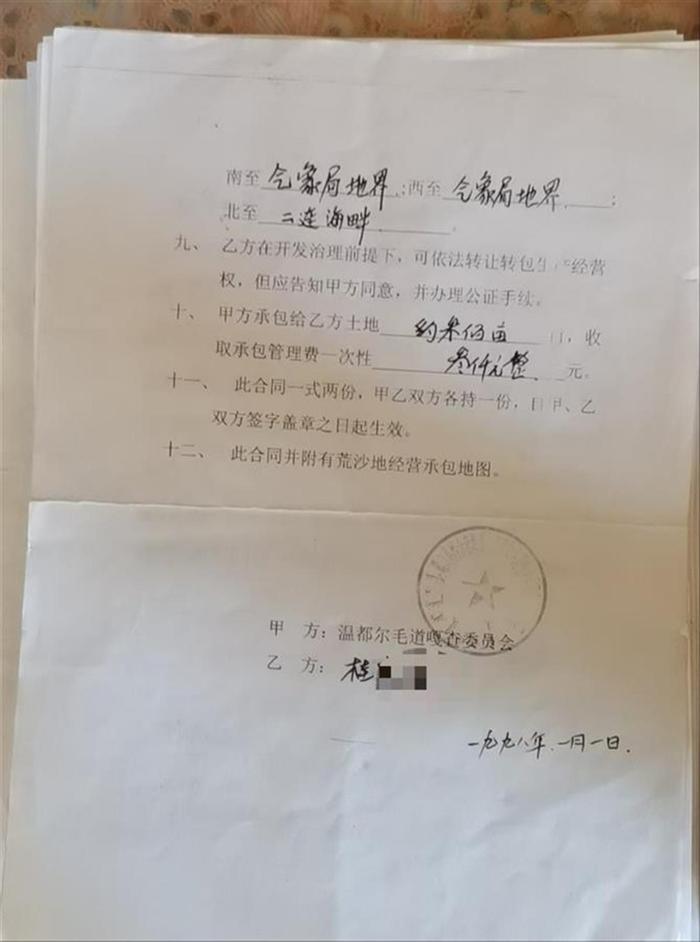 南至气象局地界;西至气象局地界;
北至二连海畔
九、 乙方在开发治理前提下，可依法转让转包生产经营
权，但应告知甲方同意，并办理公证手续。
十、 甲方承包给乙方土地 约柒佰亩 ，收
取承包管理费一次性 叁仟元整 元。
十一、 此合同一式两份，甲乙双方各持一份，自甲、乙
双方签字盖章之日起生效。
十二、 此合同并附有荒沙地经营承包地图。
甲 方：温都尔毛道嘎查委员会
乙 方：桂
一九九八年一月一日.